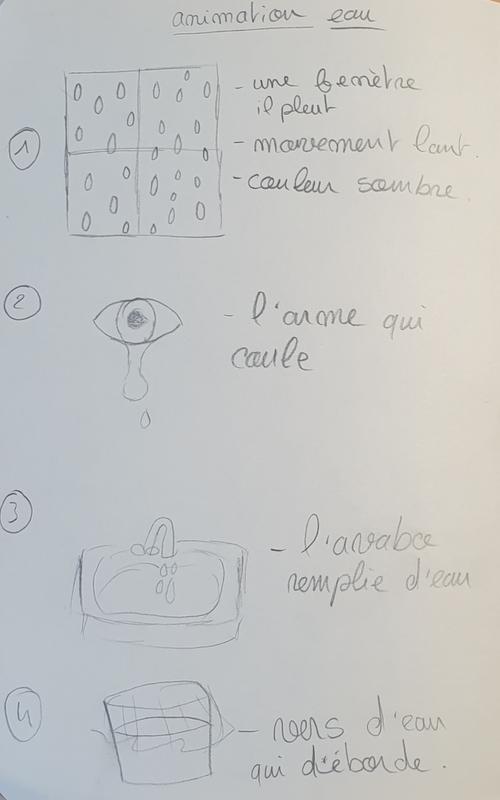 animation eau
1
- une fenêtre
il pleut
- mouvement lant.
- couleur sombre.
2
- l'arme qui
coule
3
- l'avabo
remplie d'eau
4
- vers d'eau
qui déborde.